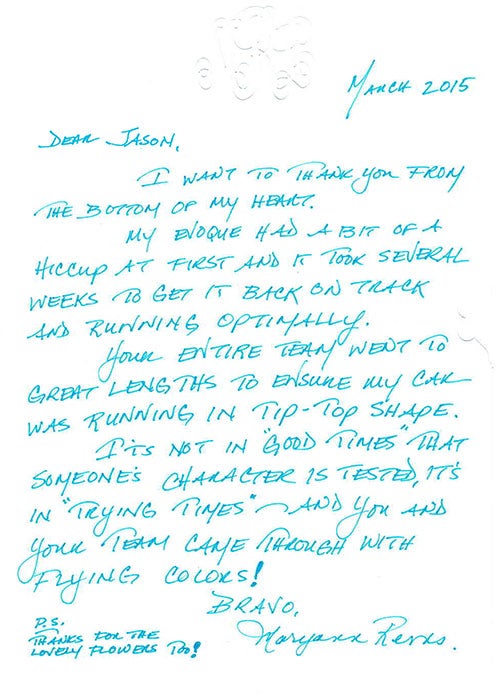 MARCH 2015
DEAR JASON,
I WANT TO THANK YOU FROM
THE BOTTOM OF MY HEART.
MY EVOQUE HAD A BIT OF A
HICCUP AT FIRST AND IT TOOK SEVERAL
WEEKS TO GET IT BACK ON TRACK
AND RUNNING OPTIMALLY.
YOUR ENTIRE TEAM WENT TO
GREAT LENGTHS TO ENSURE MY CAR
WAS RUNNING IN TIP-TOP SHAPE.
IT'S NOT IN "GOOD TIMES" THAT
SOMEONE'S CHARACTER IS TESTED, IT'S
IN "TRYING TIMES" - AND YOU AND
YOUR TEAM CAME THROUGH WITH
FLYING COLORS!
BRAVO,
Maryann
P.S.
THANKS FOR THE
LOVELY FLOWERS TOO!